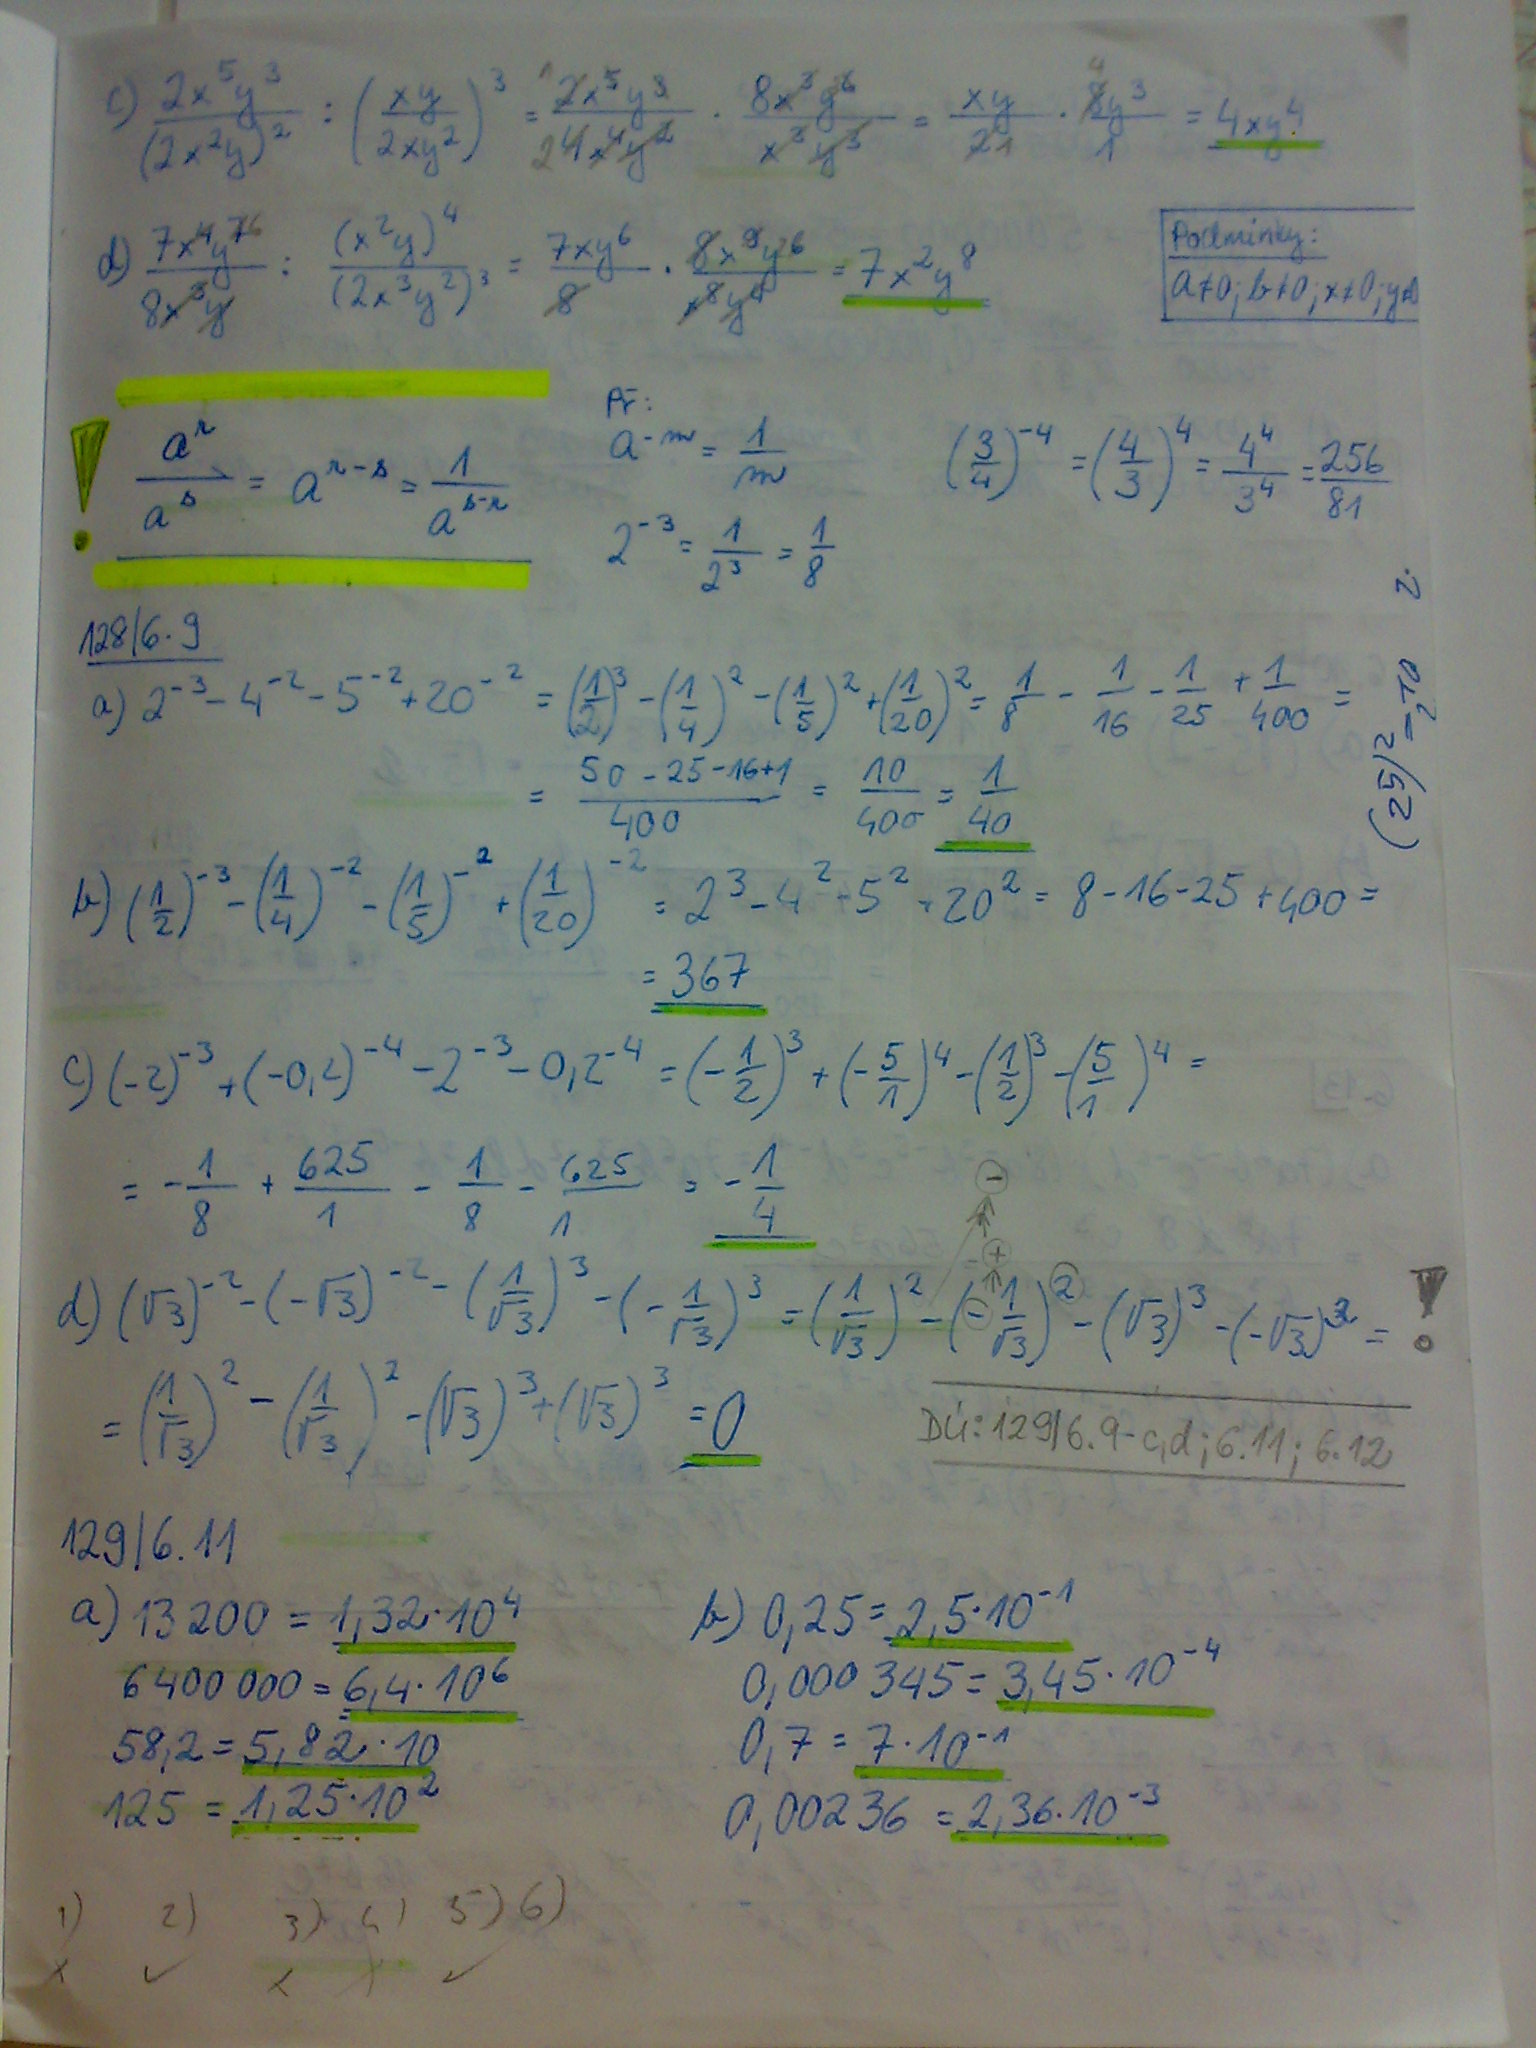 c) \frac{2x^5y^3}{(2x^2y)^2} : (\frac{xy}{2xy^2})^3 = \frac{2x^5y^3}{4x^4y^2} · \frac{8x^3y^6}{x^3y^3} = \frac{xy}{2} · \frac{8y^3}{1} = 4xy^4
d) \frac{7x^4y^7}{8x^3y} : \frac{(x^2y)^4}{(2x^3y^2)^3} = \frac{7xy^6}{8} · \frac{8x^9y^6}{x^8y^4} = 7x^2y^8
Podmínky:
a≠0; b≠0; x≠0; y≠0
! \frac{a^r}{a^s} = a^{r-s} = \frac{1}{a^{s-r}}
Př:
a^{-m} = \frac{1}{m}
(\frac{3}{4})^{-4} = (\frac{4}{3})^4 = \frac{4^4}{3^4} = \frac{256}{81}
2^{-3} = \frac{1}{2^3} = \frac{1}{8}
128/6.9
a) 2^{-3} - 4^{-2} - 5^{-2} + 20^{-2} = (\frac{1}{2})^3 - (\frac{1}{4})^2 - (\frac{1}{5})^2 + (\frac{1}{20})^2 = \frac{1}{8} - \frac{1}{16} - \frac{1}{25} + \frac{1}{400} =
= \frac{50-25-16+1}{400} = \frac{10}{400} = \frac{1}{40}
(2^5)^2 = 2^{10}
b) (\frac{1}{2})^{-3} - (\frac{1}{4})^{-2} - (\frac{1}{5})^{-2} + (\frac{1}{20})^{-2} = 2^3 - 4^2 - 5^2 + 20^2 = 8 - 16 - 25 + 400 =
= 367
c) (-2)^{-3} + (-0,2)^{-4} - 2^{-3} - 0,2^{-4} = (-\frac{1}{2})^3 + (-\frac{5}{1})^4 - (\frac{1}{2})^3 - (\frac{5}{1})^4 =
= -\frac{1}{8} + \frac{625}{1} - \frac{1}{8} - \frac{625}{1} = -\frac{1}{4}
d) (√3)^{-2} - (-√3)^{-2} - (\frac{1}{√3})^3 - (-\frac{1}{√3})^3 = (\frac{1}{√3})^2 - (-\frac{1}{√3})^2 - (√3)^3 - (-√3)^3 = !
= (\frac{1}{√3})^2 - (\frac{1}{√3})^2 - (√3)^3 + (√3)^3 = 0
DÚ: 129/6.9-c,d; 6.11; 6.12
129/6.11
a) 13 200 = 1,32·10^4
6 400 000 = 6,4·10^6
58,2 = 5,82·10
125 = 1,25·10^2
b) 0,25 = 2,5·10^{-1}
0,000 345 = 3,45·10^{-4}
0,7 = 7·10^{-1}
0,00236 = 2,36·10^{-3}
1) 2) 3) 4) 5) 6)
x ✓ x x ✓